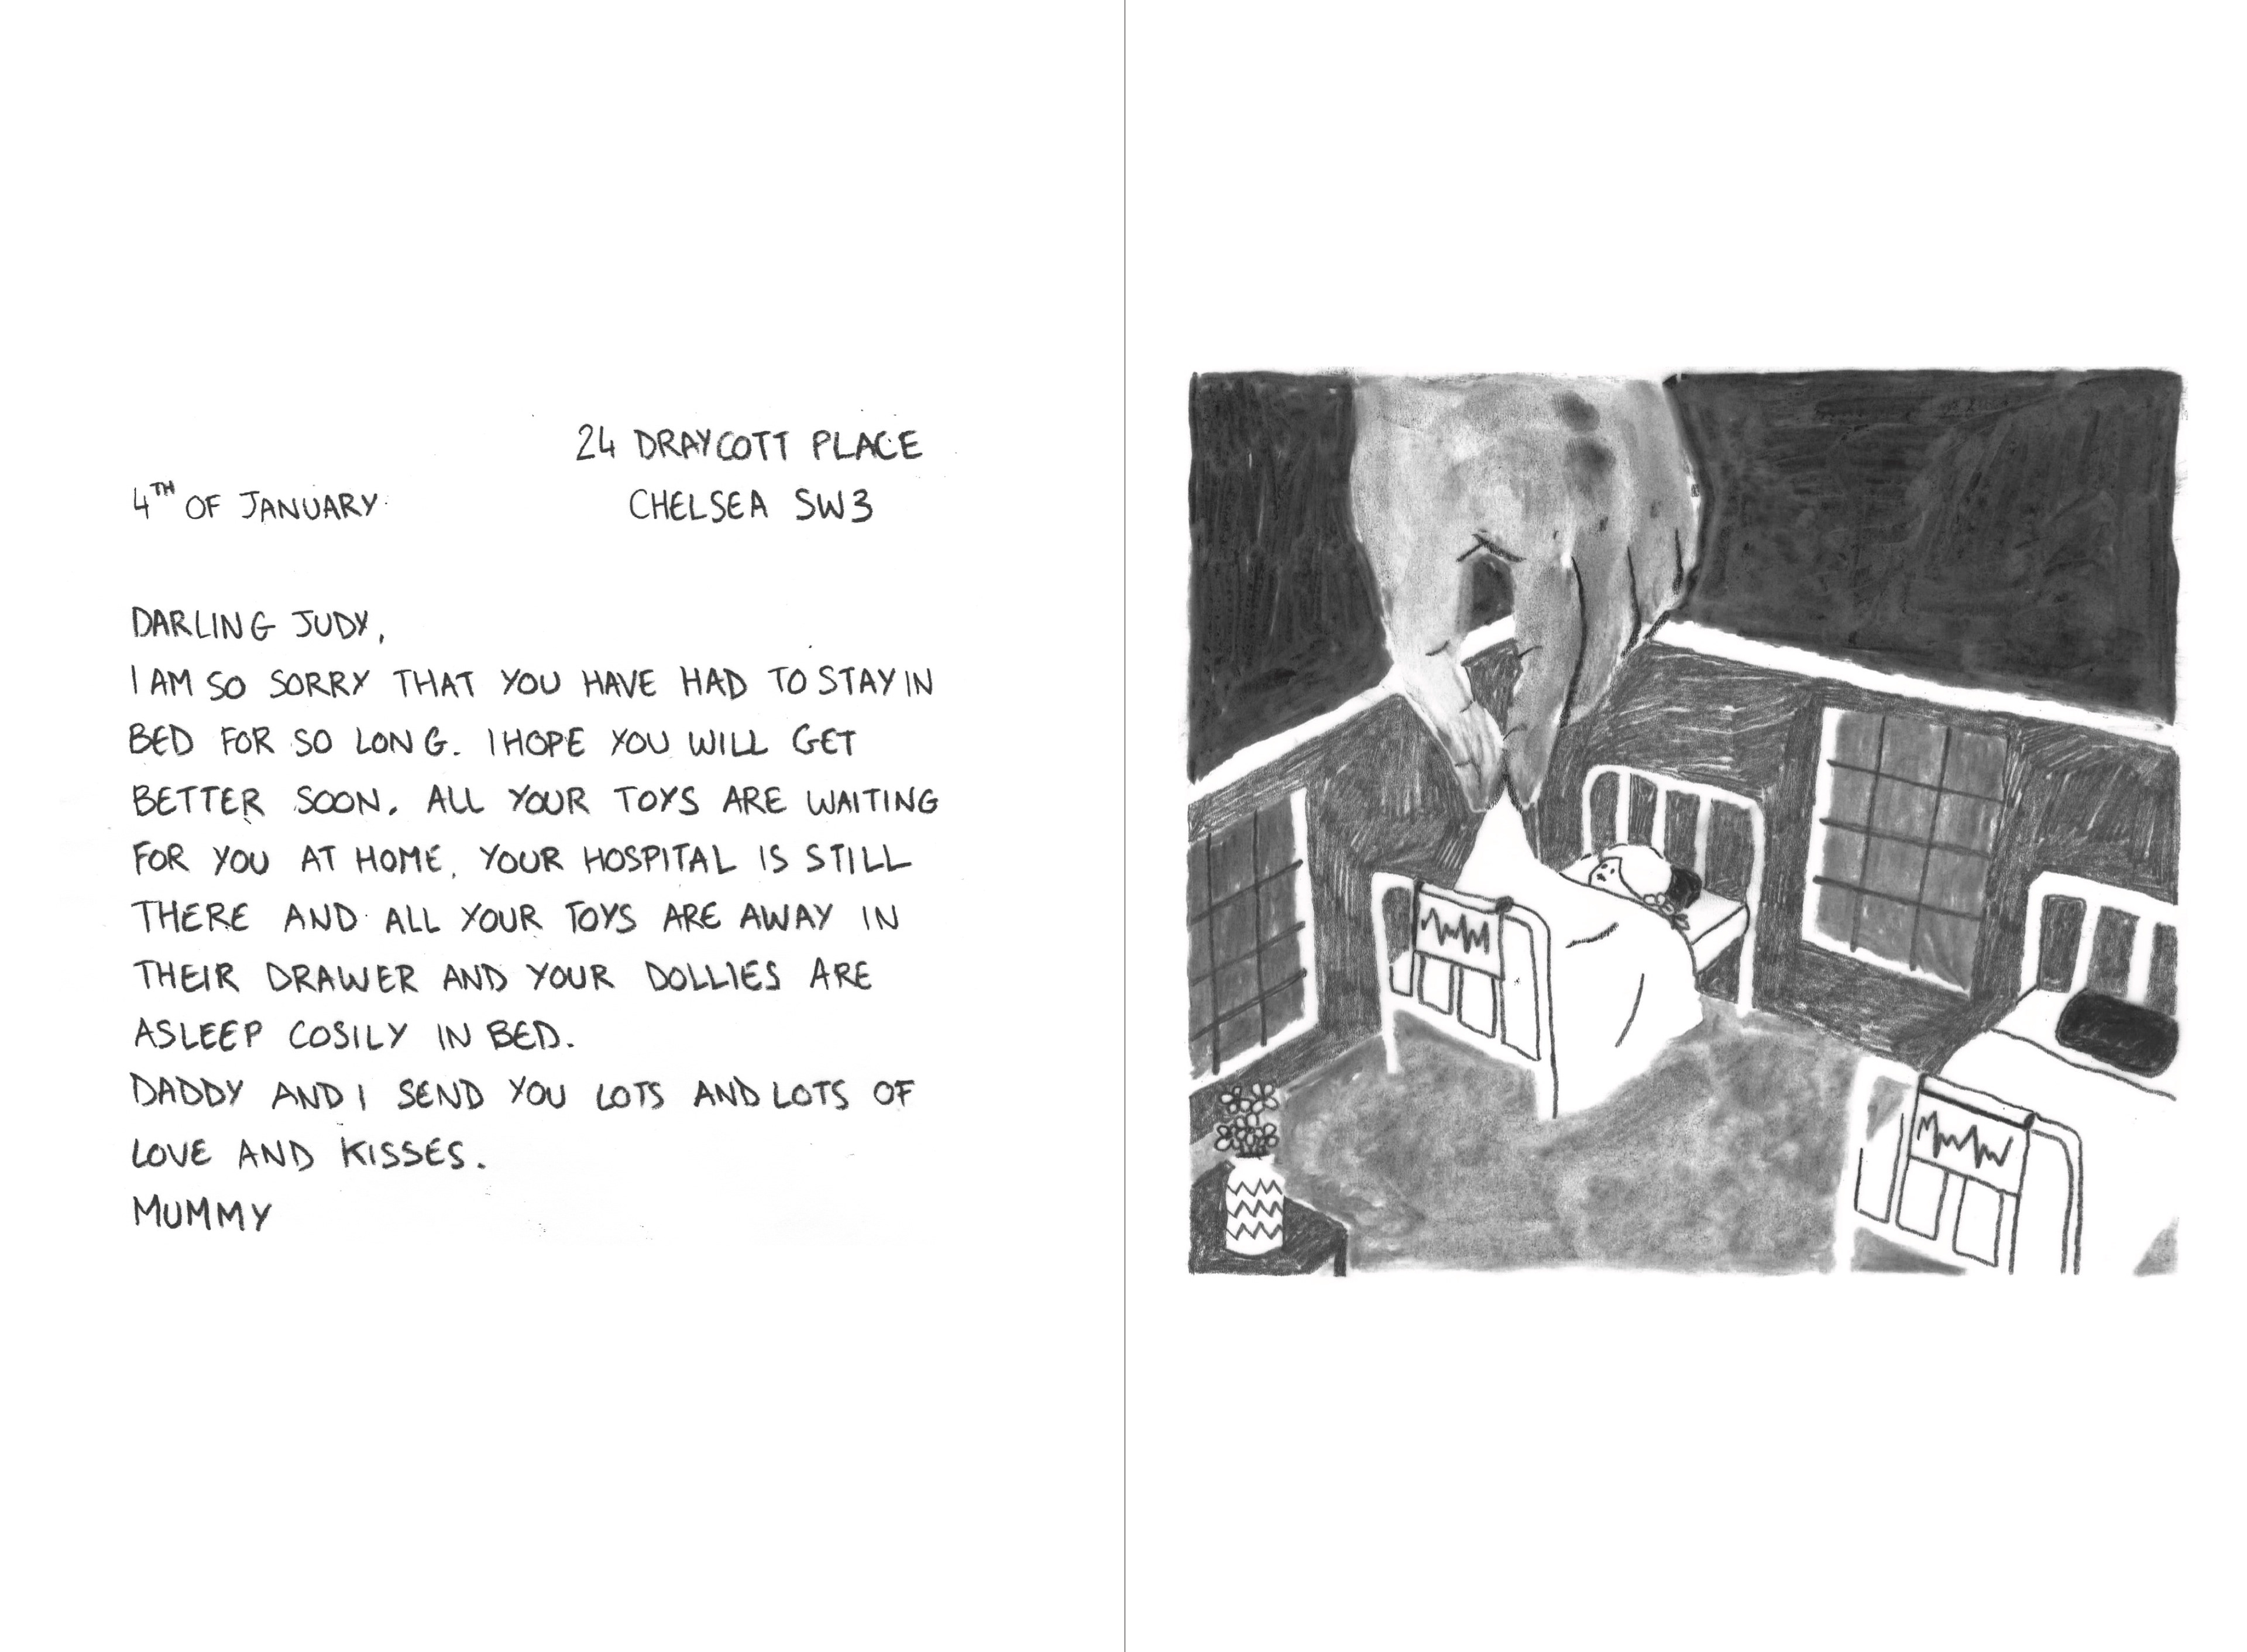 24 DRAYCOTT PLACE
4TH OF JANUARY
CHELSEA SW3
DARLING JUDY,
I AM SO SORRY THAT YOU HAVE HAD TO STAY IN
BED FOR SO LONG. I HOPE YOU WILL GET
BETTER SOON. ALL YOUR TOYS ARE WAITING
FOR YOU AT HOME. YOUR HOSPITAL IS STILL
THERE AND ALL YOUR TOYS ARE AWAY IN
THEIR DRAWER AND YOUR DOLLIES ARE
ASLEEP COSILY IN BED.
DADDY AND I SEND YOU LOTS AND LOTS OF
LOVE AND KISSES.
MUMMY